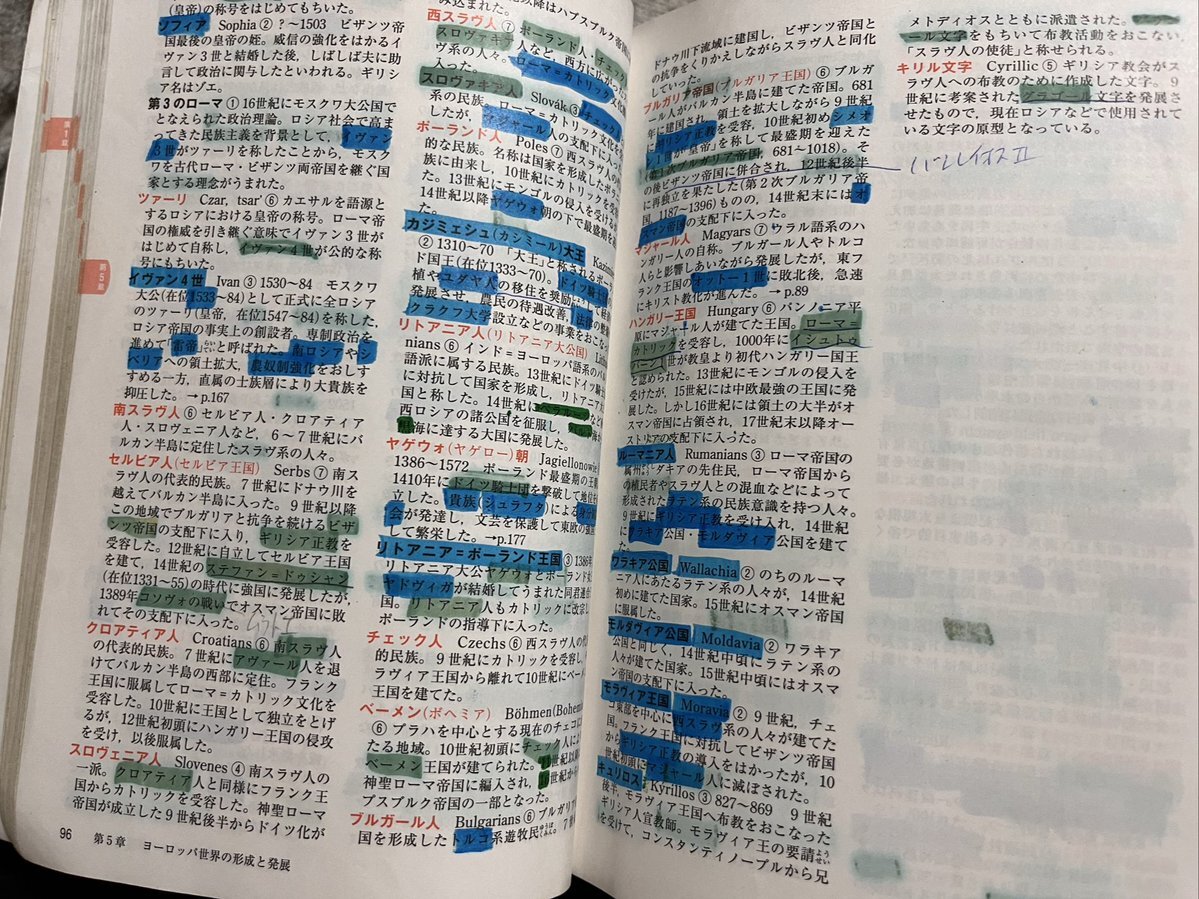 皇帝の称号をはじめてもちいた。
ソフィア Sophia ② ?〜1503 ビザンツ帝
国最後の皇帝の姪。威信の強化をはかるイ
ヴァン3世と結婚した後,しばしば夫に助
言して政治に関与したといわれる。ギリシ
ア名はゾエ。
第3のローマ ① 16世紀にモスクワ大公国で
となえられた政治理論。ロシア社会で高ま
ってきた民族主義を背景として,イヴァン
3世がツァーリを称したことから,モスク
ワを古代ローマ・ビザンツ両帝国を継ぐ国
家とする理念がうまれた。
ツァーリ Czar, tsar' ⑥ カエサルを語源と
するロシアにおける皇帝の称号。ローマ帝
国の権威を引き継ぐ意味でイヴァン3世が
はじめて自称し,イヴァン4世が公的な称
号にもちいた。
イヴァン4世 Ivan ③ 1530〜84 モスクワ
大公(在位1533〜84)として正式に全ロシア
のツァーリ(皇帝,在位1547〜84)を称した,
ロシア帝国の事実上の創設者。専制政治を
進めて「雷帝」と呼ばれた。南ロシアやシ
ベリアへの領土拡大,農奴制強化をおしす
すめる一方,直属の士族層により大貴族を
抑圧した。→p.167
南スラヴ人 ⑥ セルビア人・クロアティア
人・スロヴェニア人など,6〜7世紀にバ
ルカン半島に定住したスラヴ系の人々。
セルビア人(セルビア王国) Serbs ⑦ 南ス
ラヴ人の代表的民族。7世紀にドナウ川を
越えてバルカン半島に入った。9世紀以降
この地域でブルガリアと抗争を続けるビザ
ンツ帝国の支配下に入り,ギリシア正教を
受容した。12世紀に自立してセルビア王国
を建て,14世紀のステファン=ドゥシャン
(在位1331〜55)の時代に強国に発展したが,
1389年コソヴォの戦いでオスマン帝国に敗
れてその支配下に入った。
クロアティア人 Croatians ⑥ 南スラヴ人
の代表的民族。7世紀にアヴァール人を退
けてバルカン半島の西部に定住。フランク
王国に服属してローマ=カトリック文化を
受容した。10世紀に王国として独立をとげ
るが,12世紀初頭にハンガリー王国の侵攻
を受け,以後服属した。
スロヴェニア人 Slovenes ④ 南スラヴ人の
一派。クロアティア人と同様にフランク王
国からカトリックを受容した。神聖ローマ
帝国が成立した9世紀後半からドイツ化が
96 第5章 ヨーロッパ世界の形成と発展
第5章
以降はハプスブルク帝国
み込まれた。
西スラヴ人 ⑦ ポーランド人,チェック
スロヴァキア人など,西方に広が
ヴ系の人々。ローマ=カトリック
入った。
スロヴァキア人 Slovák ③ チェック人
系の民族。ローマ=カトリック文化を
したが,マジャール人の支配下に
ポーランド人 Poles ⑦ 西スラヴ人の
的な民族。名称は国家を形成したポラ
族に由来し,10世紀にカトリックを受
た。13世紀にモンゴルの侵入を受けるが
14世紀以降ヤゲウォ朝の下で最盛期を
た。
カジミェシュ(カシミール)大王 Kazimi
② 1310〜70 「大王」と称されるポー
ド国王(在位1333〜70)。ドイツ騎士
植やユダヤ人の移住を奨励し
発展させ,農民の待遇改善,法律の整
クラクフ大学設立などの事業をおこ
リトアニア人(リトアニア大公国) Lith
nians ⑥ インド=ヨーロッパ語系のバル
語派に属する民族。13世紀にドイツ騎士
に対抗して国家を形成し,リトアニア大
国と称した。14世紀にベラルーシなど
西ロシアの諸公国を征服し,バルト海か
黒海に達する大国に発展した。
ヤゲウォ(ヤゲロー)朝 Jagiellonowie
1386〜1572 ポーランド最盛期の王朝
1410年にドイツ騎士団を撃破して地位を
立した。貴族(シュラフタ)による身分制
会が発達し,文芸を保護して東欧の強国
して繁栄した。→p.177
リトアニア=ポーランド王国 ③ 1386年
リトアニア大公ヤゲウォとポーランド女
ヤドヴィガが結婚してうまれた同君連合
国。リトアニア人もカトリックに改宗し
ポーランドの指導下に入った。
チェック人 Czechs ⑥ 西スラヴ人の代
的民族。9世紀にカトリックを受容し,モ
ラヴィア王国から離れて10世紀にベーメ
王国を建てた。
ベーメン(ボヘミア) Böhmen(Bohemia
⑥ プラハを中心とする現在のチェコに
たる地域。10世紀初頭にチェック人によ
ベーメン王国が建てられた。
神聖ローマ帝国に編入され,
プスブルク帝国の一部となった。
ブルガール人 Bulgarians ⑥ ブルガリア
国を形成したトルコ系遊牧民。7世
ドナウ川下流域に建国し,ビザンツ帝国と
の抗争をくりかえしながらスラヴ人と同化
していった。
ブルガリア帝国(ブルガリア王国) ⑥ ブルガ
ール人がバルカン半島に建てた帝国。681
年に建国され,領土を拡大しながら9世紀
にギリシア正教を受容,10世紀初めシメオ
ン1世が皇帝」を称して最盛期を迎えた
(第1次ブルガリア帝国,681〜1018)。そ
の後ビザンツ帝国に併合され,12世紀後半
に再独立を果たした(第2次ブルガリア帝
国,1187〜1396)ものの,14世紀末にはオ
スマン帝国の支配下に入った。
バシレイオスⅡ
マジャール人 Magyars ⑦ ウラル語系のハ
ンガリー人の自称。ブルガール人やトルコ
人らと影響しあいながら発展したが,東フ
ランク王国のオットー1世に敗北後,急速
にキリスト教化が進んだ。→p.89
ハンガリー王国 Hungary ⑥ パンノニア平
原にマジャール人が建てた王国。ローマ=
カトリックを受容し,1000年にイシュトゥ
ヴァーン1世が教皇より初代ハンガリー国王
と認められた。13世紀にモンゴルの侵入を
受けたが,15世紀には中欧最強の王国に発
展した。しかし16世紀には領土の大半がオ
スマン帝国に占領され,17世紀末以降オー
ストリアの支配下に入った。
ルーマニア人 Rumanians ③ ローマ帝国の
属州ダキアの先住民,ローマ帝国から
の植民者やスラヴ人との混血などによって
形成されたラテン系の民族意識を持つ人々。
9世紀にギリシア正教を受け入れ,14世紀
にワラキア公国・モルダヴィア公国を建て
た。
ワラキア公国 Wallachia ② のちのルーマ
ニア人にあたるラテン系の人々が,14世紀
初めに建てた国家。15世紀にオスマン帝国
に服属した。
モルダヴィア公国 Moldavia ② ワラキア
公国と同じく,14世紀中頃にラテン系の
人々が建てた国家。15世紀中頃にはオスマ
ン帝国の支配下に入った。
モラヴィア王国 Moravia ② 9世紀,チェ
コ東部を中心に西スラヴ系の人々が建てた
国。フランク王国に対抗してビザンツ帝国
からギリシア正教の導入をはかったが,10
世紀初頭にマジャール人に滅ぼされた。
キュリロス Kyrillos ③ 827〜869 9世紀
後半,モラヴィア王国へ布教をおこなった
ギリシア人宣教師。モラヴィア王の要請
を受けて,コンスタンティノープルから兄
メトディオスとともに派遣された。
ール文字をもちいて布教活動をおこない,
「スラヴ人の使徒」と称せられる。
キリル文字 Cyrillic ⑤ ギリシア教会がス
ラヴ人への布教のために作成した文字。9
世紀に考案されたグラゴール文字を発展さ
せたもので,現在ロシアなどで使用されて
いる文字の原型となっている。